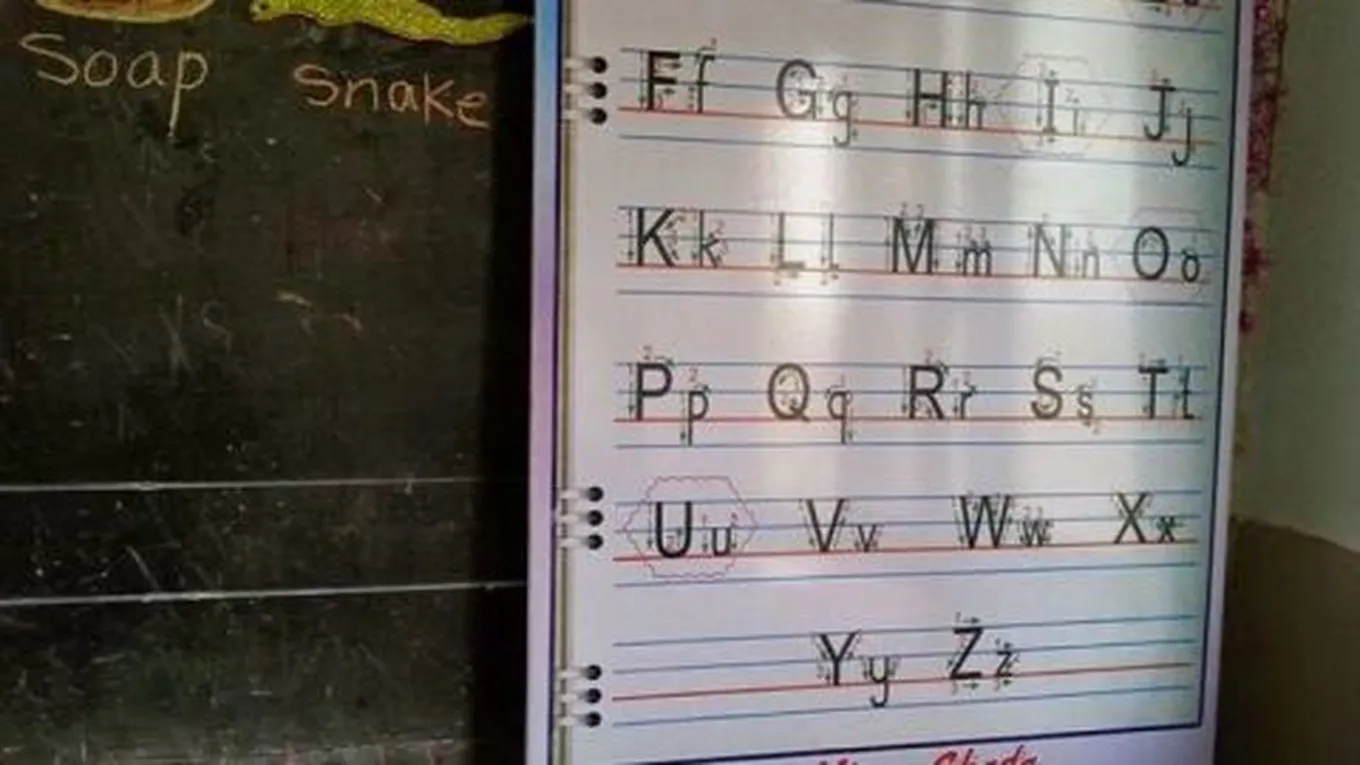 Soap
Snake
Ff Gg Hh Ii Jj
Kk Ll Mm Nn Oo
Pp Qq Rr Ss Tt
Uu Vv Ww Xx
Yy Zz